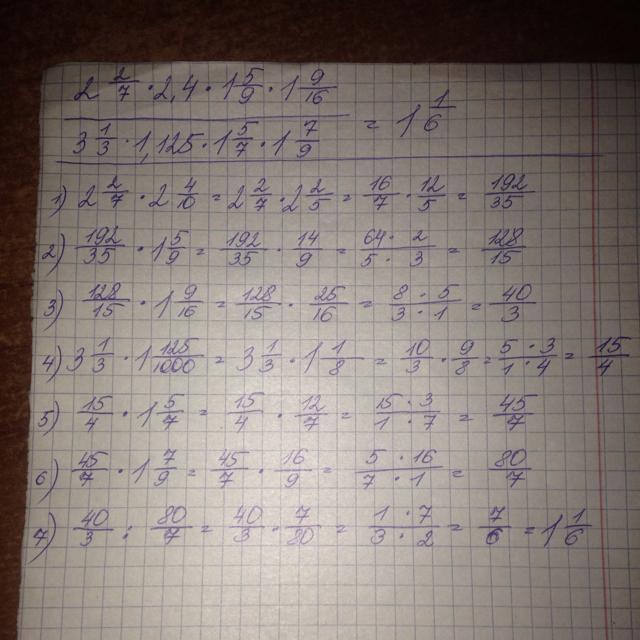 2 2/7 · 2,4 · 1 5/9 · 1 9/16
3 1/3 · 1,125 · 1 5/7 · 1 7/9 = 1 1/6
1) 2 2/7 · 2 4/10 = 2 2/7 · 2 2/5 = 16/7 · 12/5 = 192/35
2) 192/35 · 1 5/9 = 192/35 · 14/9 = 64 · 2/5 · 3 = 128/15
3) 128/15 · 1 9/16 = 128/15 · 25/16 = 8 · 5/3 · 1 = 40/3
4) 3 1/3 · 1 125/1000 = 3 1/3 · 1 1/8 = 10/3 · 9/8 = 5 · 3/1 · 4 = 15/4
5) 15/4 · 1 5/7 = 15/4 · 12/7 = 15 · 3/1 · 7 = 45/7
6) 45/7 · 1 7/9 = 45/7 · 16/9 = 5 · 16/7 · 1 = 80/7
7) 40/3 : 80/7 = 40/3 · 7/80 = 1 · 7/3 · 2 = 7/6 = 1 1/6